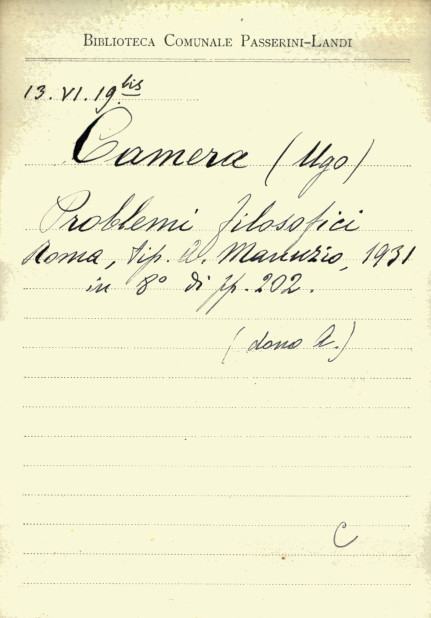 BIBLIOTECA COMUNALE PASSERINI-LANDI
13. VI. 19 bis
Camera (Ugo)
Problemi filosofici
Roma, tip. Manuzio, 1931
in 8° di pp. 202.
(dono A.)
C